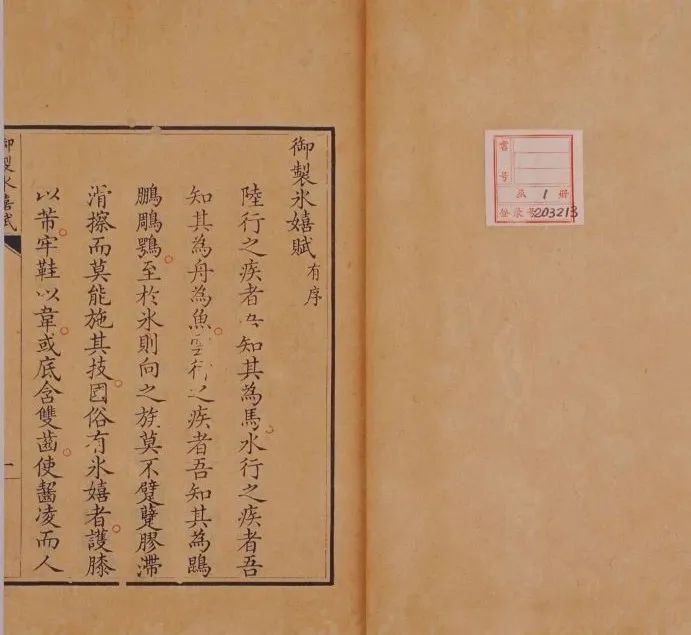 御製冰嬉賦有序
陸行之疾者吾知其為馬水行之疾者吾
知其為舟為魚雲行之疾者吾知其為鵾
鵬鵰鶚至於氷則向之族莫不躄躠膠滯
滑擦而莫能施其技國俗有氷嬉者護膝
以芾牢鞋以韋或底含雙齒使齧凌而人
御製冰嬉賦
一
書
號
1 冊
登录号 203213